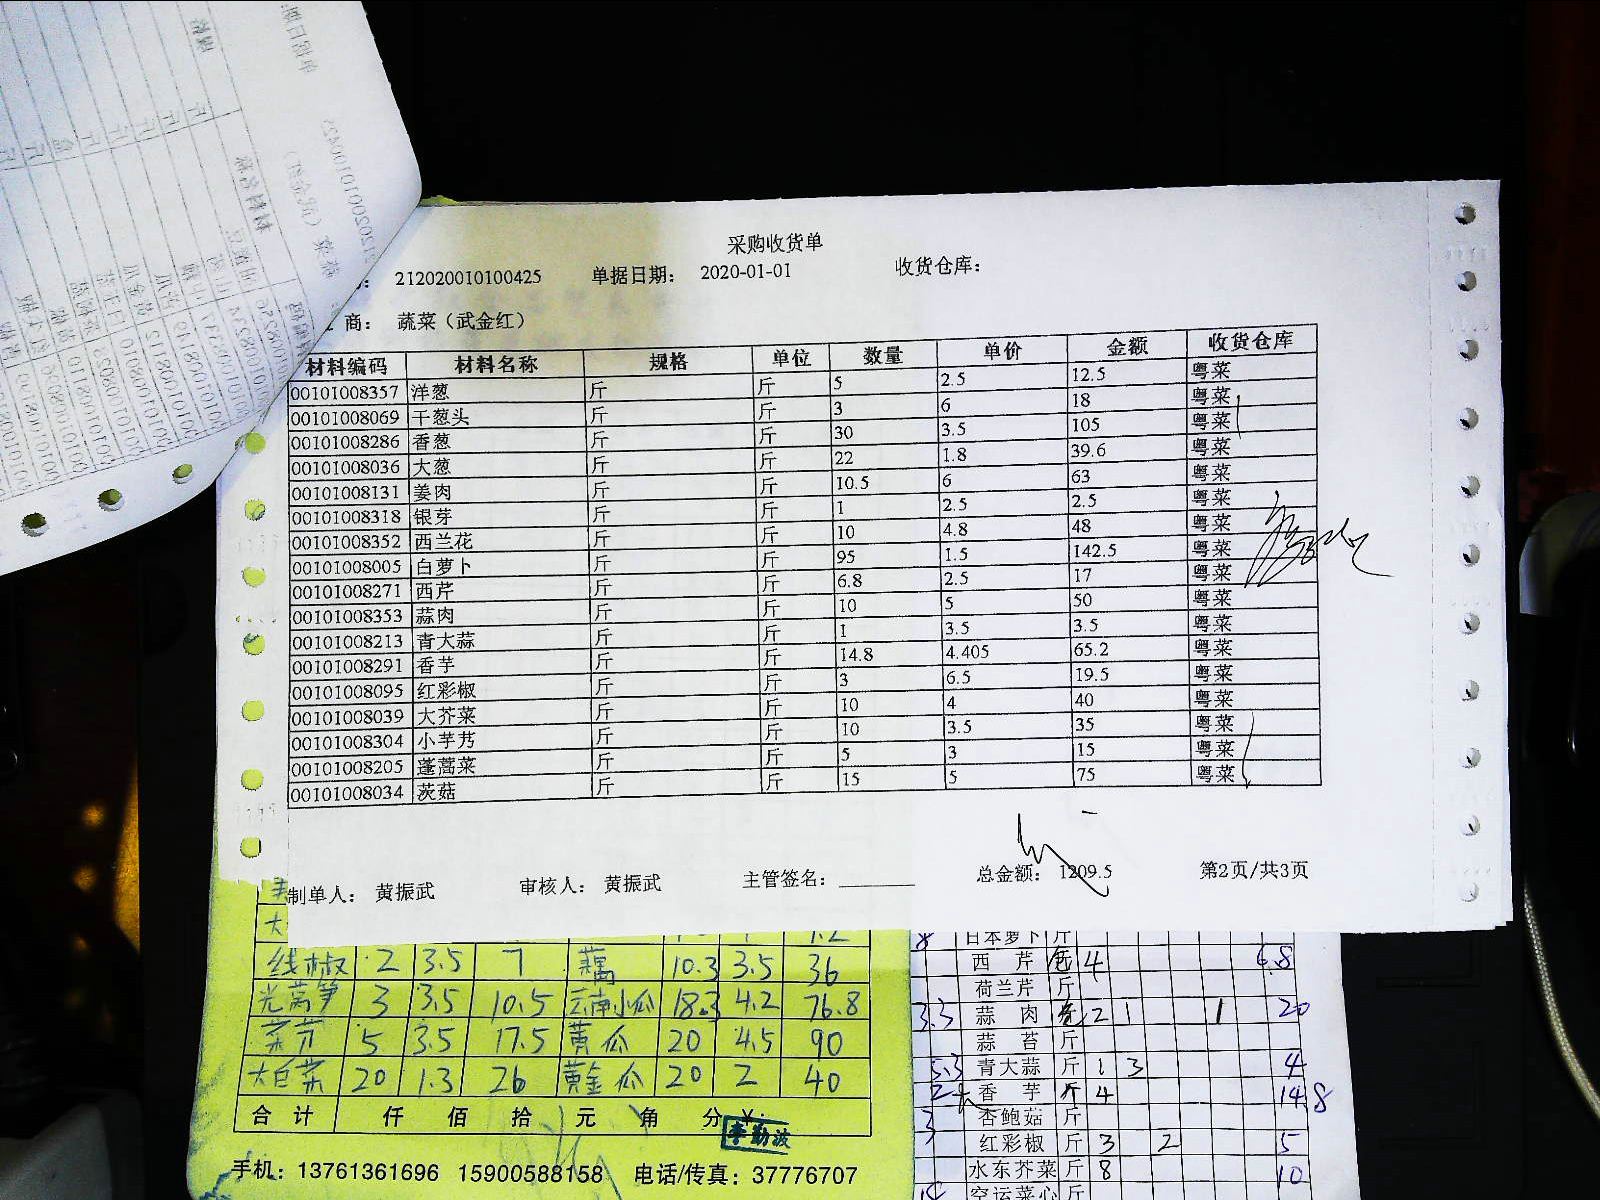 采购收货单
212020010100425 单据日期： 2020-01-01 收货仓库：
商： 蔬菜（武金红）
材料编码 材料名称 规格 单位 数量 单价 金额 收货仓库
00101008357 洋葱 斤 斤 5 2.5 12.5 粤菜
00101008069 干葱头 斤 斤 3 6 18 粤菜
00101008286 香葱 斤 斤 30 3.5 105 粤菜
00101008036 大葱 斤 斤 22 1.8 39.6 粤菜
00101008131 姜肉 斤 斤 10.5 6 63 粤菜
00101008318 银芽 斤 斤 1 2.5 2.5 粤菜
00101008352 西兰花 斤 斤 10 4.8 48 粤菜
00101008005 白萝卜 斤 斤 95 1.5 142.5 粤菜
00101008271 西芹 斤 斤 6.8 2.5 17 粤菜
00101008353 蒜肉 斤 斤 10 5 50 粤菜
00101008213 青大蒜 斤 斤 1 3.5 3.5 粤菜
00101008291 香芋 斤 斤 14.8 4.405 65.2 粤菜
00101008095 红彩椒 斤 斤 3 6.5 19.5 粤菜
00101008039 大芥菜 斤 斤 10 4 40 粤菜
00101008304 小芋艿 斤 斤 10 3.5 35 粤菜
00101008205 蓬蒿菜 斤 斤 5 3 15 粤菜
00101008034 茨菇 斤 斤 15 5 75 粤菜
制单人： 黄振武 审核人： 黄振武 主管签名： 总金额： 1209.5 第2页/共3页
线椒 2 3.5 7 藕 10.3 3.5 36
光莴笋 3 3.5 10.5 云南小瓜 18.3 4.2 76.8
菜芥 5 3.5 17.5 黄瓜 20 4.5 90
大白菜 20 1.3 26 黄金瓜 20 2 40
合计 仟 佰 拾 元 角 分 ¥:
李勤波
手机：13761361696 15900588158 电话/传真：37776707
日本萝卜 斤
西芹 4 6.8
荷兰芹 斤
3.3 蒜肉 2 1 1 20
蒜苔 斤
5.3 青大蒜 斤 1 3 4
香芋 斤 4 14.8
杏鲍菇 斤
3 红彩椒 斤 3 2 5
水东芥菜 斤 8 10
空运菜心 斤